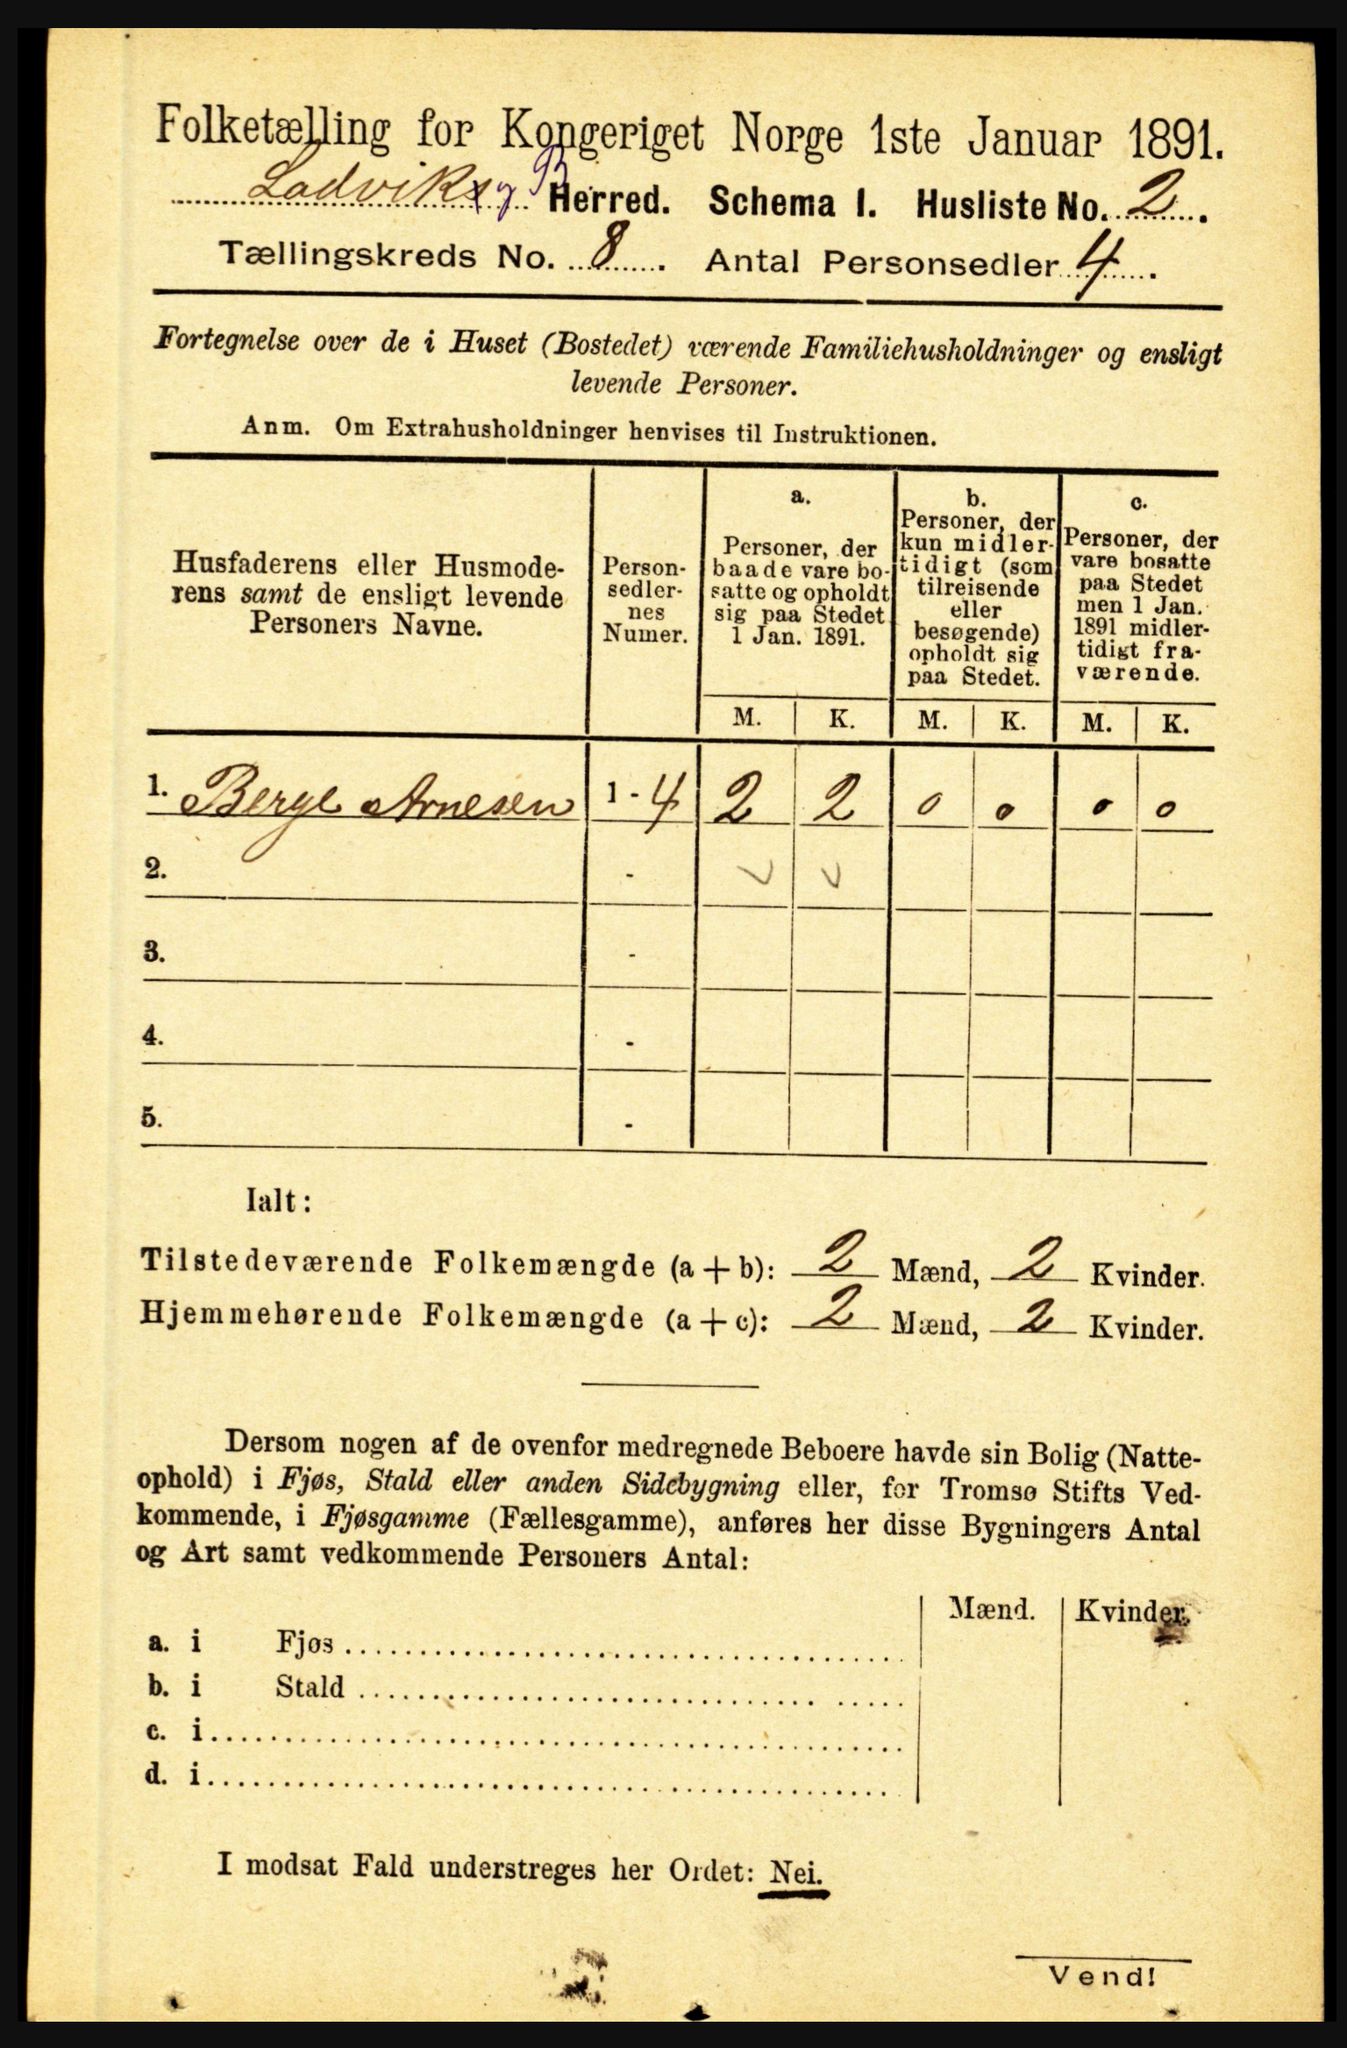 Folketælling for Kongeriget Norge 1ste Januar 1891.
Ladviks og B. Herred. Schema I. Husliste No. 2.
Tællingskreds No. 8. Antal Personsedler 4.
Fortegnelse over de i Huset (Bostedet) værende Familiehusholdninger og ensligt
levende Personer.
Anm. Om Extrahusholdninger henvises til Instruktionen.
Husfaderens eller Husmode-
rens samt de ensligt levende
Personers Navne.
Person-
sedler-
nes
Numer.
a.
Personer, der
baade vare bo-
satte og opholdt
sig paa Stedet
1 Jan. 1891.
b.
Personer, der
kun midler-
tidigt (som
tilreisende
eller
besøgende)
opholdt sig
paa Stedet.
c.
Personer, der
vare bosatte
paa Stedet
men 1 Jan.
1891 midler-
tidigt fra-
værende.
M. K. M. K. M. K.
1. Berge Arnesen 1-4 2 2 0 0 0 0
2. -
3. -
4. -
5. -
Ialt:
Tilstedeværende Folkemængde (a + b): 2 Mænd, 2 Kvinder.
Hjemmehørende Folkemængde (a + c): 2 Mænd, 2 Kvinder.
Dersom nogen af de ovenfor medregnede Beboere havde sin Bolig (Natte-
ophold) i Fjøs, Stald eller anden Sidebygning eller, for Tromsø Stifts Ved-
kommende, i Fjøsgamme (Fællesgamme), anføres her disse Bygningers Antal
og Art samt vedkommende Personers Antal:
Mænd. Kvinder.
a. i Fjøs
b. i Stald
c. i
d. i
I modsat Fald understreges her Ordet: Nei.
Vend!